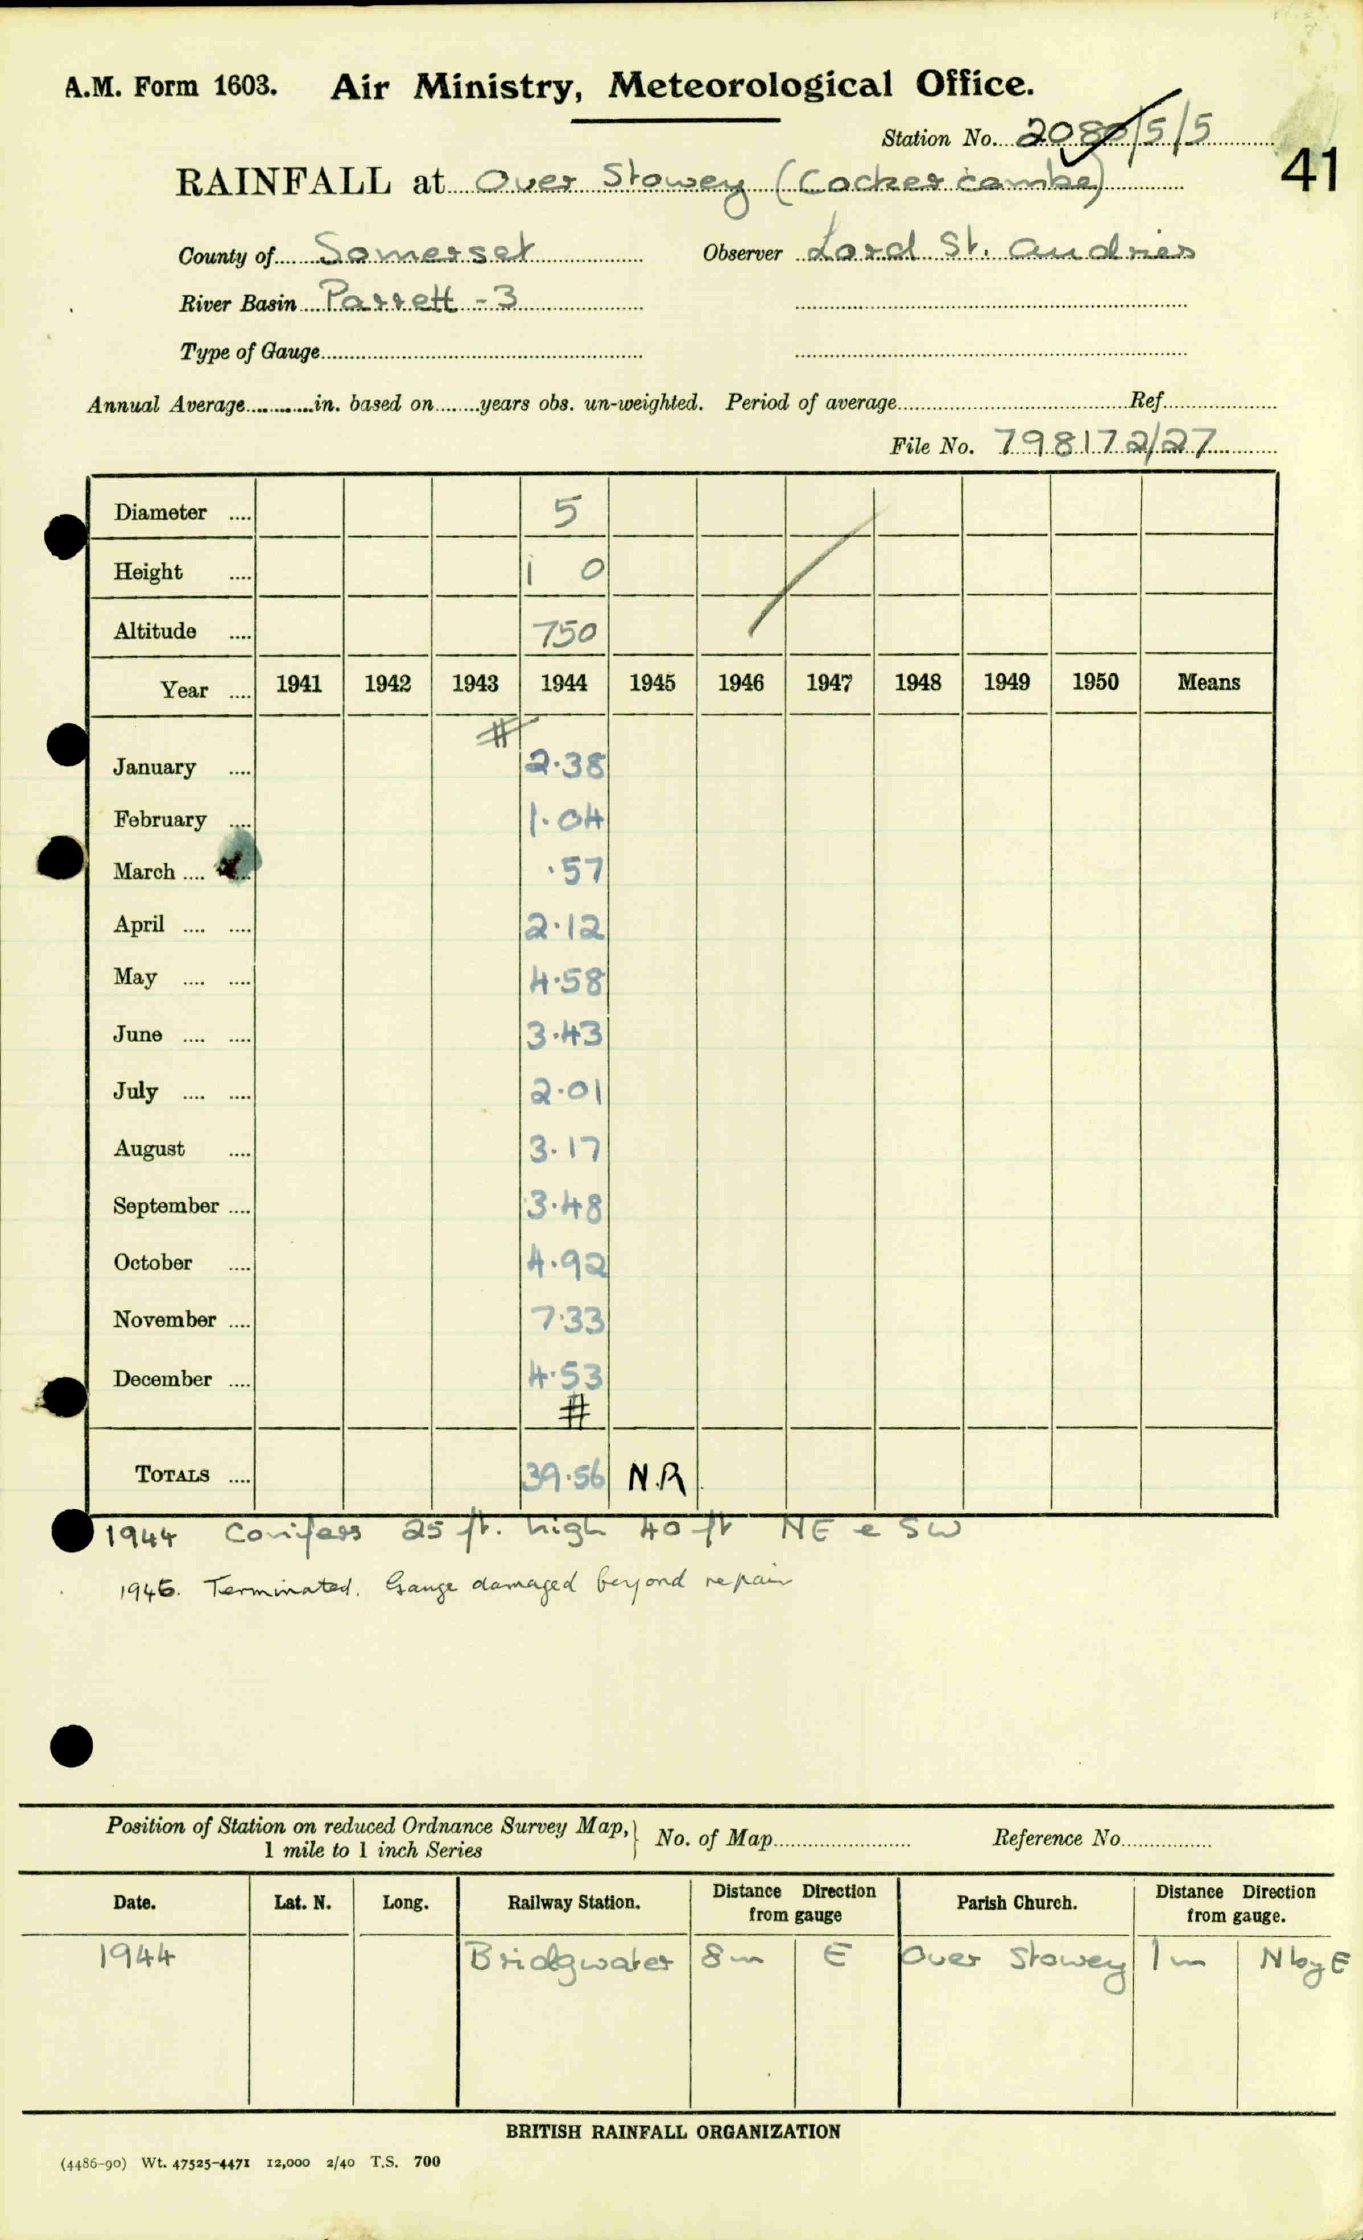 A.M. Form 1603. Air Ministry, Meteorological Office.
Station No. 2080/5/5
41
RAINFALL at Over Stowey (Cockercombe)
County of Somerset Observer Lord St. Audries
River Basin Parrett - 3
Type of Gauge
Annual Average in. based on years obs. un-weighted. Period of average Ref.
File No. 798172/27
Diameter 5
Height 1 0
Altitude 750
Year 1941 1942 1943 1944 1945 1946 1947 1948 1949 1950 Means
#
January 2.38
February 1.04
March .57
April 2.12
May 4.58
June 3.43
July 2.01
August 3.17
September 3.48
October 4.92
November 7.33
December 4.53
#
TOTALS 39.56 N.R.
1944 Conifers 25 ft. high 40 ft NE & SW
1945. Terminated. Gauge damaged beyond repair
Position of Station on reduced Ordnance Survey Map, } No. of Map Reference No.
1 mile to 1 inch Series
Date. Lat. N. Long. Railway Station. Distance Direction from gauge Parish Church. Distance Direction from gauge.
1944 Bridgwater 8m E Over Stowey 1m N by E
BRITISH RAINFALL ORGANIZATION
(4486-90) Wt. 47525-4471 12,000 2/40 T.S. 700